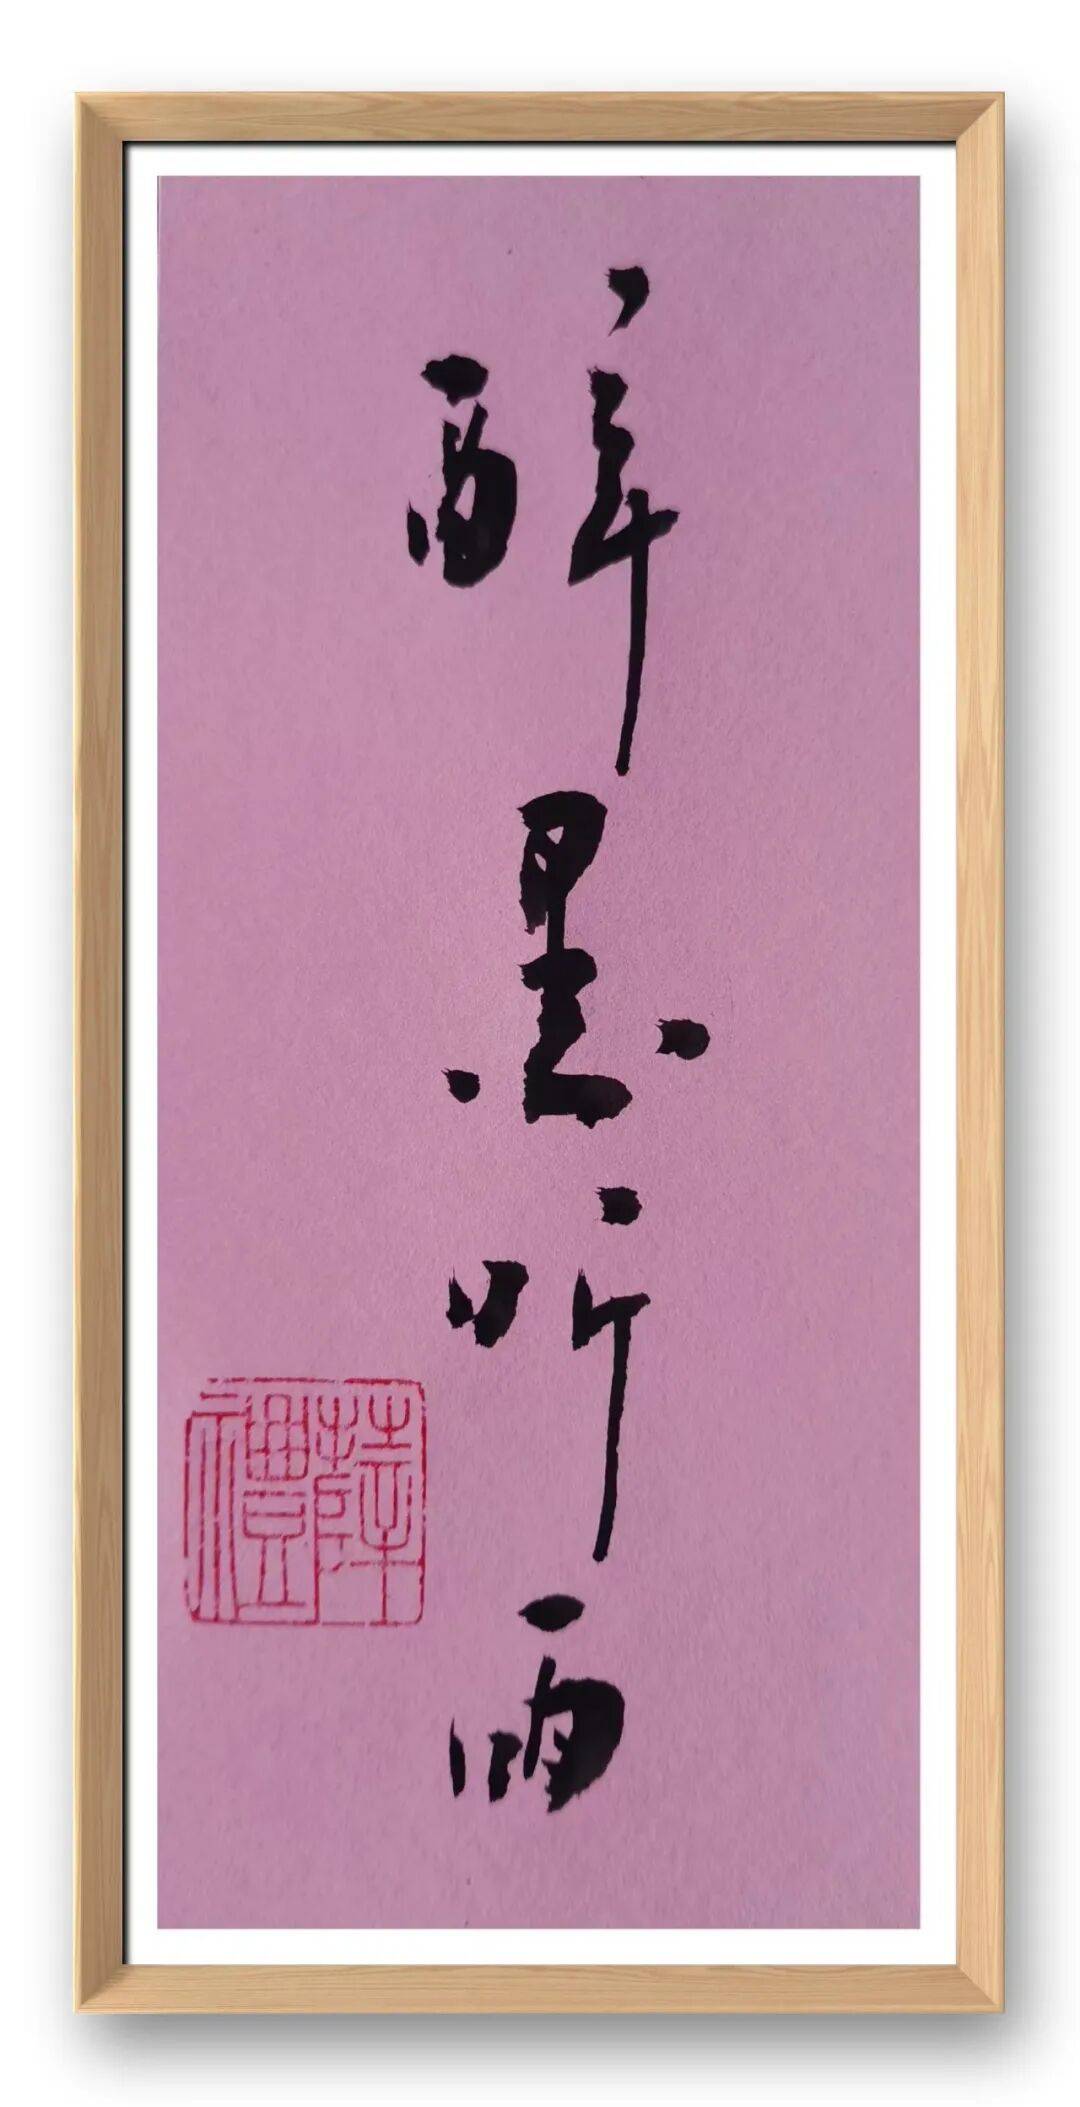 醉墨听雨